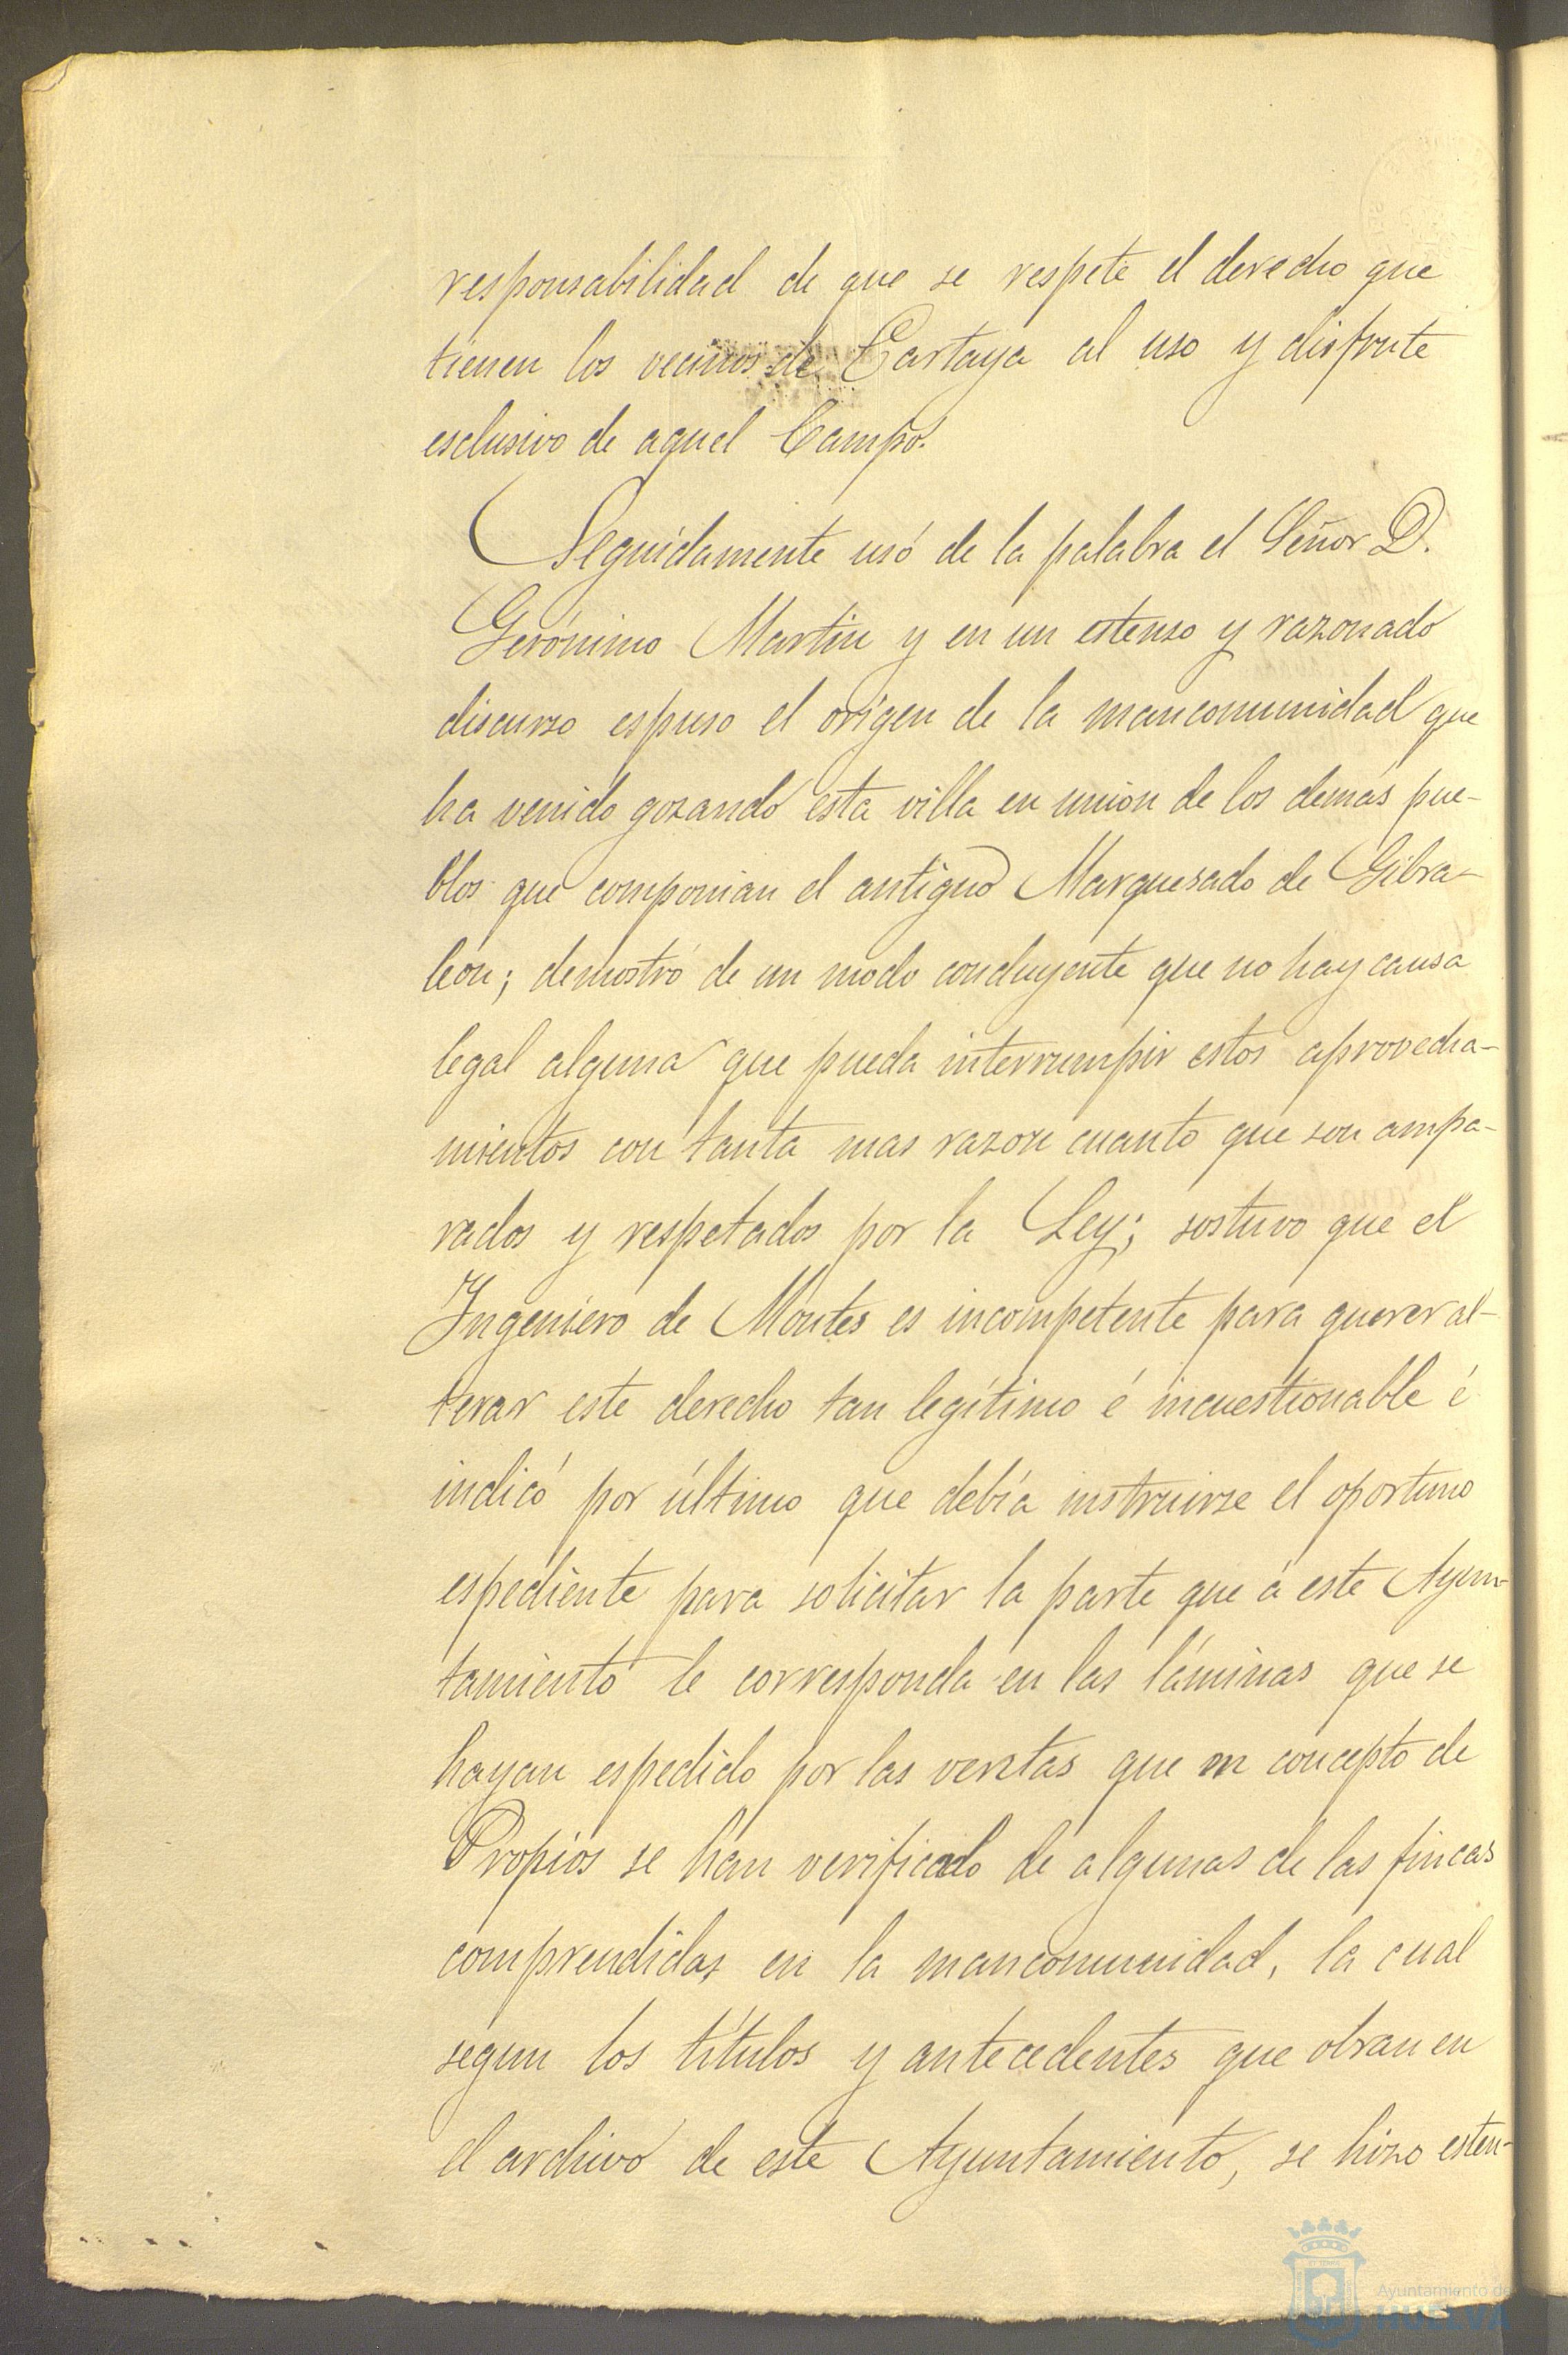 responsabilidad de que se respete el derecho que
tienen los vecinos de Cartaya al uso y disfrute
esclusivo de aquel Campo.
Seguidamente usó de la palabra el Señor D.
Gerónimo Martin y en un estenso y razonado
discurso espuso el orígen de la mancomunidad que
ha venido gozando esta villa en union de los demás pue-
blos que componian el antiguo Marquesado de Gibra-
leon; demostró de un modo concluyente que no hay causa
legal alguna que pueda interrumpir estos aprovecha-
mientos con tanta mas razon cuanto que son ampa-
rados y respetados por la Ley; sostuvo que el
Ingeniero de Montes es incompetente para querer al-
terar este derecho tan legítimo é incuestionable é
indicó por último que debía instruirse el oportuno
espediente para solicitar la parte que á este Ayun-
tamiento le corresponda en las láminas que se
hayan espedido por las ventas que en concepto de
Propios se han verificado de algunas de las fincas
comprendidas en la mancomunidad, la cual
segun los títulos y antecedentes que obran en
el archivo de este Ayuntamiento, se hizo esten-
Ayuntamiento de
HUELVA